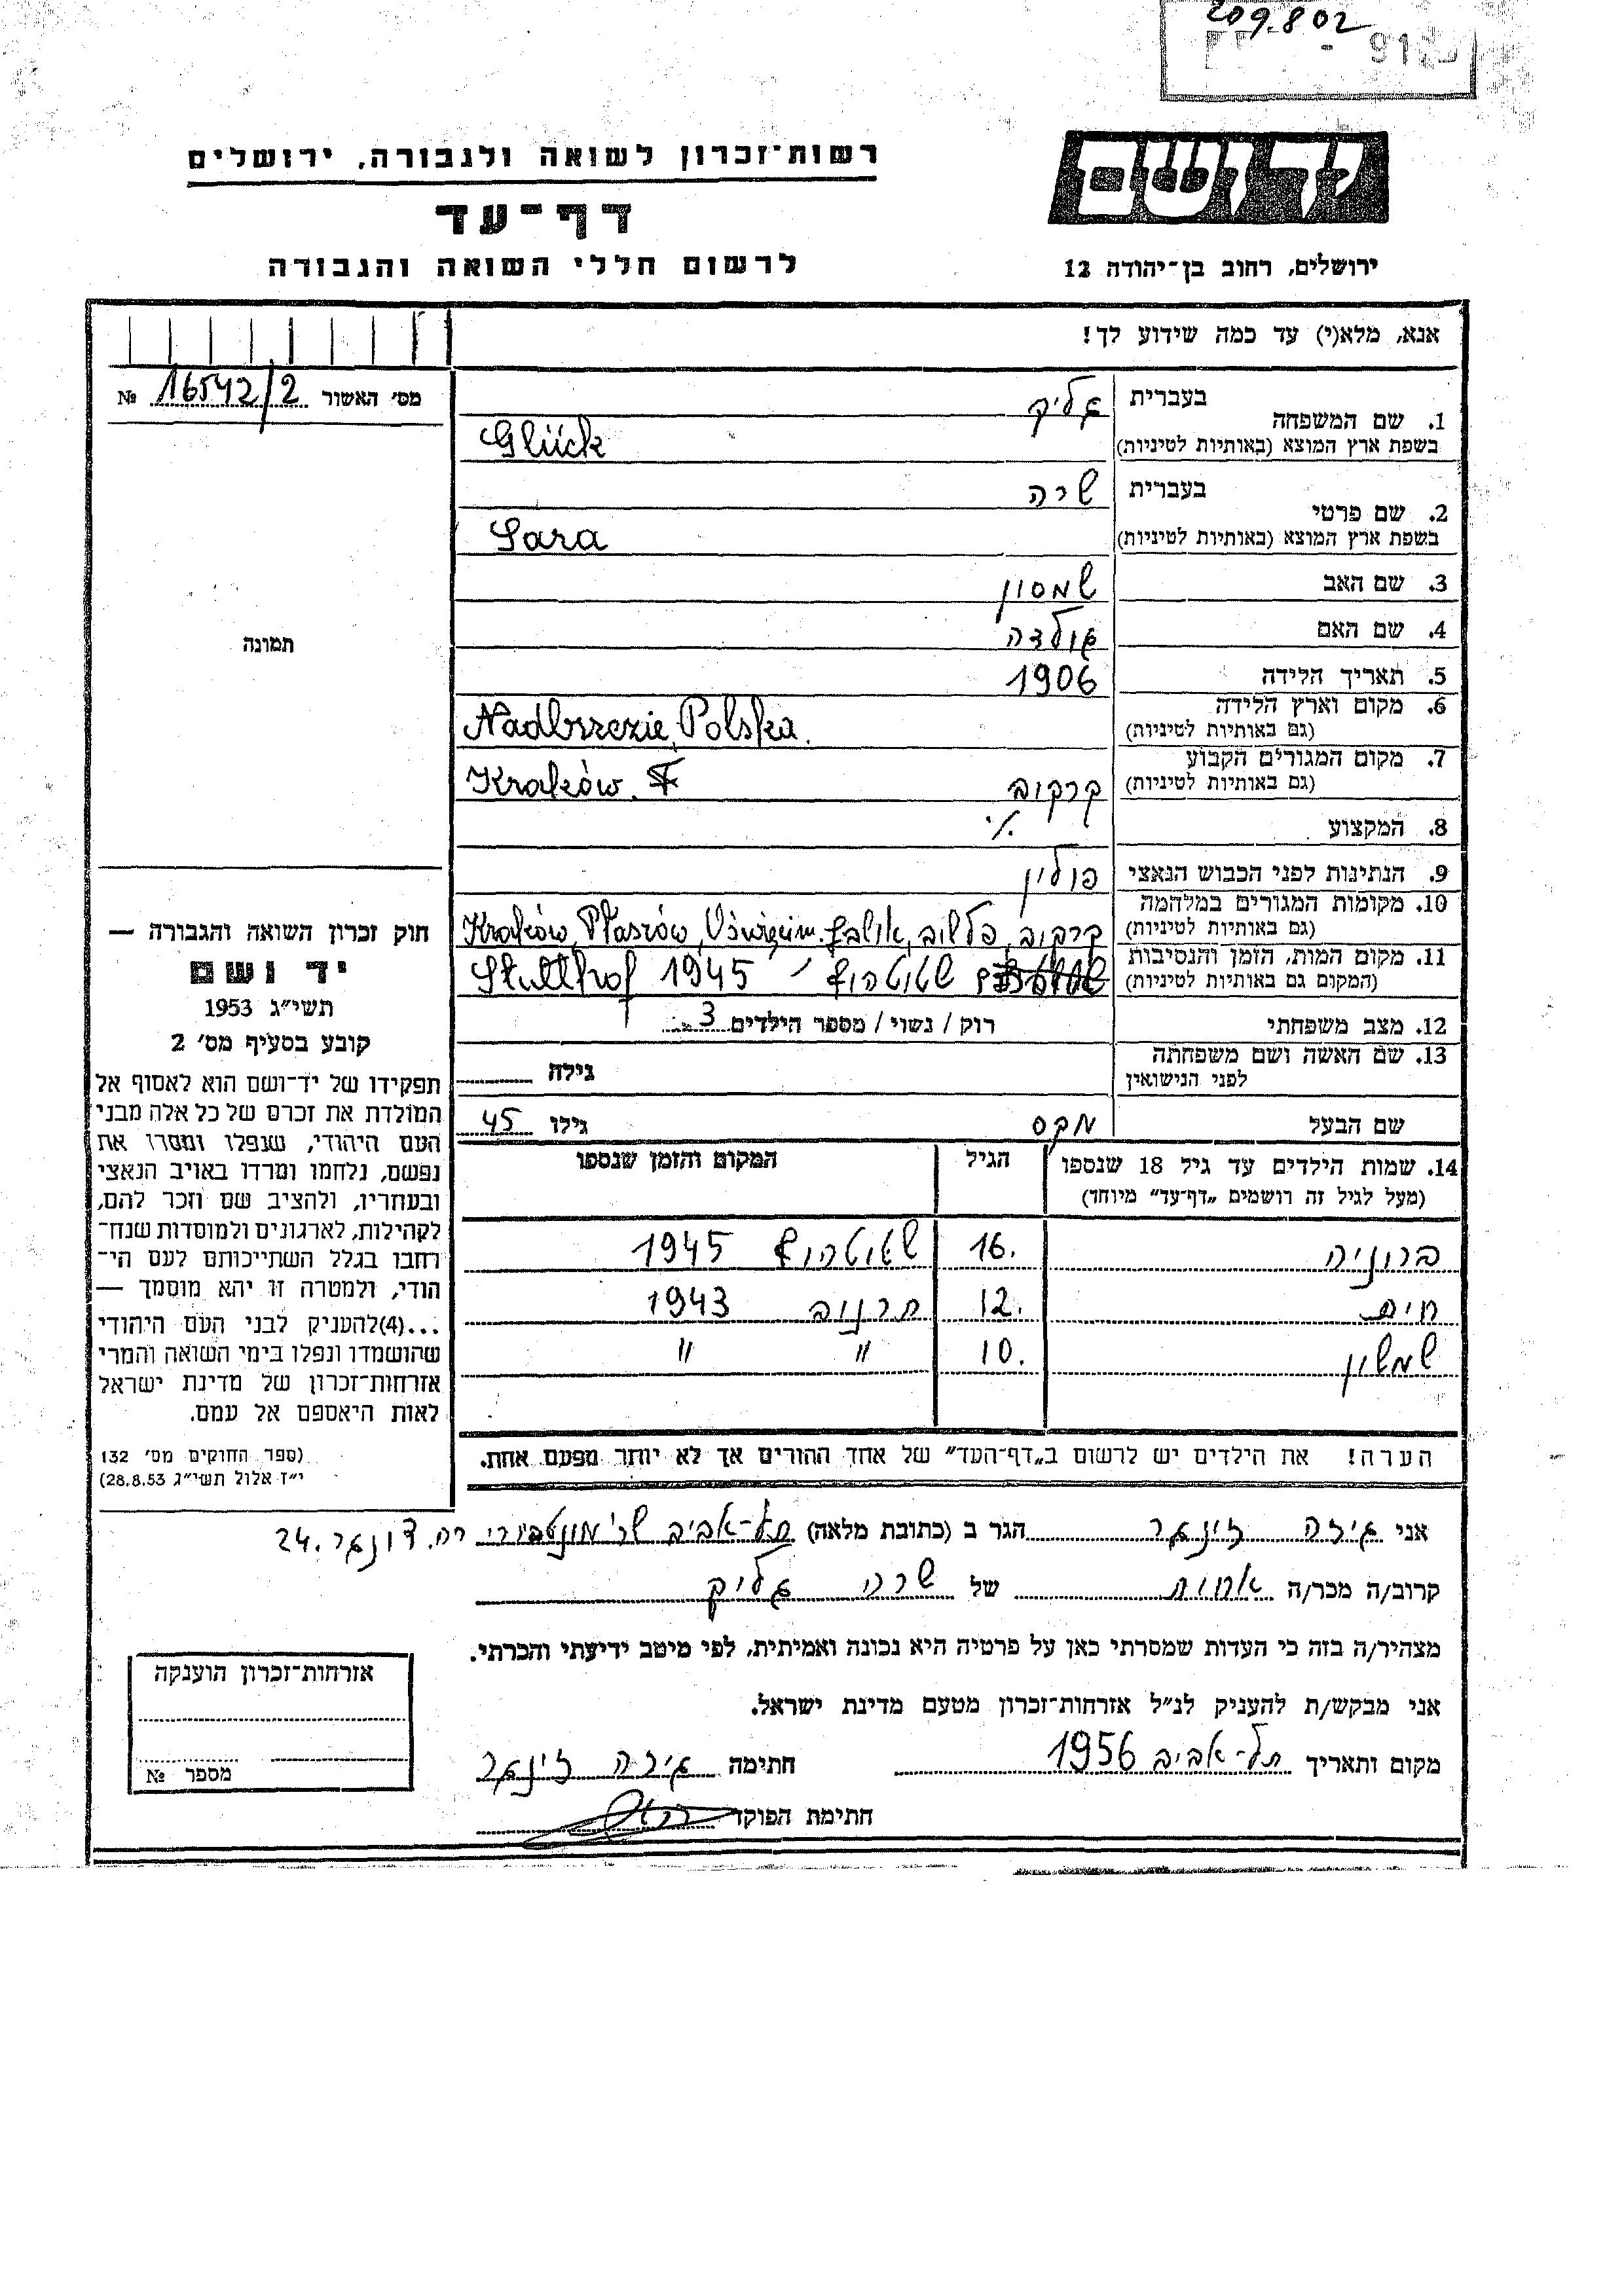 209.802
רשות־זכרון לשואה ולגבורה. ירושלים
יד ושם
דף־עד
לרשום חללי השואה והגבורה
ירושלים, רחוב בן־יהודה 12
אנא, מלא(י) עד כמה שידוע לך!
מס׳ האשור 16542/2 №
1. שם המשפחה
בעברית גליק
בשפת ארץ המוצא (באותיות לטיניות) Glück
2. שם פרטי
בעברית שרה
בשפת ארץ המוצא (באותיות לטיניות) Sara
3. שם האב שמסון
4. שם האם גולדה
5. תאריך הלידה 1906
6. מקום וארץ הלידה
(גם באותיות לטיניות) Nadbrzezie, Polska.
7. מקום המגורים הקבוע
(גם באותיות לטיניות) קרקוב Kraków.
8. המקצוע ./.
9. הנתינות לפני הכבוש הנאצי פולין
10. מקומות המגורים במלחמה
(גם באותיות לטיניות) קרקוב, פלשוב, Kraków, Płaszów, Oświęcim.
11. מקום המות, הזמן והנסיבות
(המקום גם באותיות לטיניות) שטוטהוף Stutthof 1945
12. מצב משפחתי רוק / נשוי / מספר הילדים 3
13. שם האשה ושם משפחתה
לפני הנישואין גילה
שם הבעל מקס גילו 45
14. שמות הילדים עד גיל 18 שנספו הגיל המקום והזמן שנספו
(מעל לגיל זה רושמים „דף־עד״ מיוחד)
ברוניה 16. שטוטהוף 1945
חיים 12. תרנוב 1943
שמשון 10. ״ ״
הערה! את הילדים יש לרשום ב„דף־העד״ של אחד ההורים אך לא יותר מפעם אחת.
תמונה
חוק זכרון השואה והגבורה —
יד ושם
תשי״ג 1953
קובע בסעיף מס׳ 2
תפקידו של יד־ושם הוא לאסוף אל
המולדת את זכרם של כל אלה מבני
העם היהודי, שנפלו ומסרו את
נפשם, נלחמו ומרדו באויב הנאצי
ובעוזריו, ולהציב שם וזכר להם,
לקהילות, לארגונים ולמוסדות שנח־
רבו בגלל השתייכותם לעם הי־
הודי, ולמטרה זו יהא מוסמך —
...(4)להעניק לבני העם היהודי
שהושמדו ונפלו בימי השואה והמרי
אזרחות־זכרון של מדינת ישראל
לאות היאספם אל עמם.
(ספר החוקים מס׳ 132
י״ז אלול תשי״ג 28.8.53)
אני גיזה זינגר הגר ב (כתובת מלאה) תל-אביב שכ׳ מונטיפיורי רח. 24.
קרוב/ה מכר/ה אחות של שרה גליק
מצהיר/ה בזה כי העדות שמסרתי כאן על פרטיה היא נכונה ואמיתית, לפי מיטב ידיעתי והכרתי.
אני מבקש/ת להעניק לנ״ל אזרחות־זכרון מטעם מדינת ישראל.
מקום ותאריך תל-אביב 1956 חתימה גיזה זינגר
חתימת הפוקד
אזרחות־זכרון הוענקה
מספר №